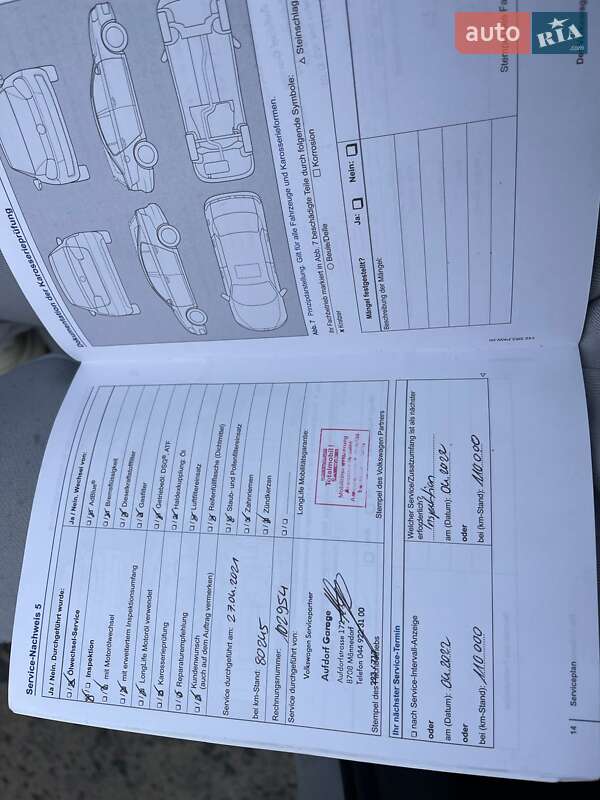 auto RIA .com
Service-Nachweis 5
Ja / Nein. Durchgeführt wurde:
Ölwechsel-Service
Inspektion
mit Motorölwechsel
mit erweitertem Inspektionsumfang
LongLife Motoröl verwendet
Karosserieprüfung
Reparaturempfehlung
Kundenwunsch
(auch auf dem Auftrag vermerken)
Ja / Nein. Wechsel von:
AdBlue®
Bremsflüssigkeit
Dieselkraftstofffilter
Gasfilter
Getriebeöl: DSG®, ATF
Haldexkupplung: Öl
Luftfiltereinsatz
Reifenfüllflasche (Dichtmittel)
Staub- und Pollenfiltereinsatz
Zahnriemen
Zündkerzen
Service durchgeführt am: 27.04.2021
bei km-Stand: 80245
Rechnungsnummer: 102954
Service durchgeführt von:
Volkswagen Servicepartner
Aufdorf Garage
Aufdorfstrasse 172
8708 Männedorf
Stempel des
LongLife Mobilitätsgarantie:
Totalmobil!
Stempel des Volkswagen Partners
Ihr nächster Service-Termin
nach Service-Intervall-Anzeige
oder
am (Datum): 04.2022
oder
bei (km-Stand): 110.000
Welcher Service/Zusatzumfang ist als nächster
erforderlich?
Inspektion
am (Datum): 04.2022
oder
bei (km-Stand): 110.000
14 Serviceplan
Dokumentation der Karosserieprüfung
Abb. 7 Prinzipdarstellung. Gilt für alle Fahrzeuge und Karosserieformen.
Ihr Fachbetrieb markiert in Abb. 7 beschädigte Teile durch folgende Symbole:
x Kratzer
Beule/Delle
Korrosion
△ Steinschlag
Mängel festgestellt?
Ja:
Nein:
Beschreibung der Mängel: